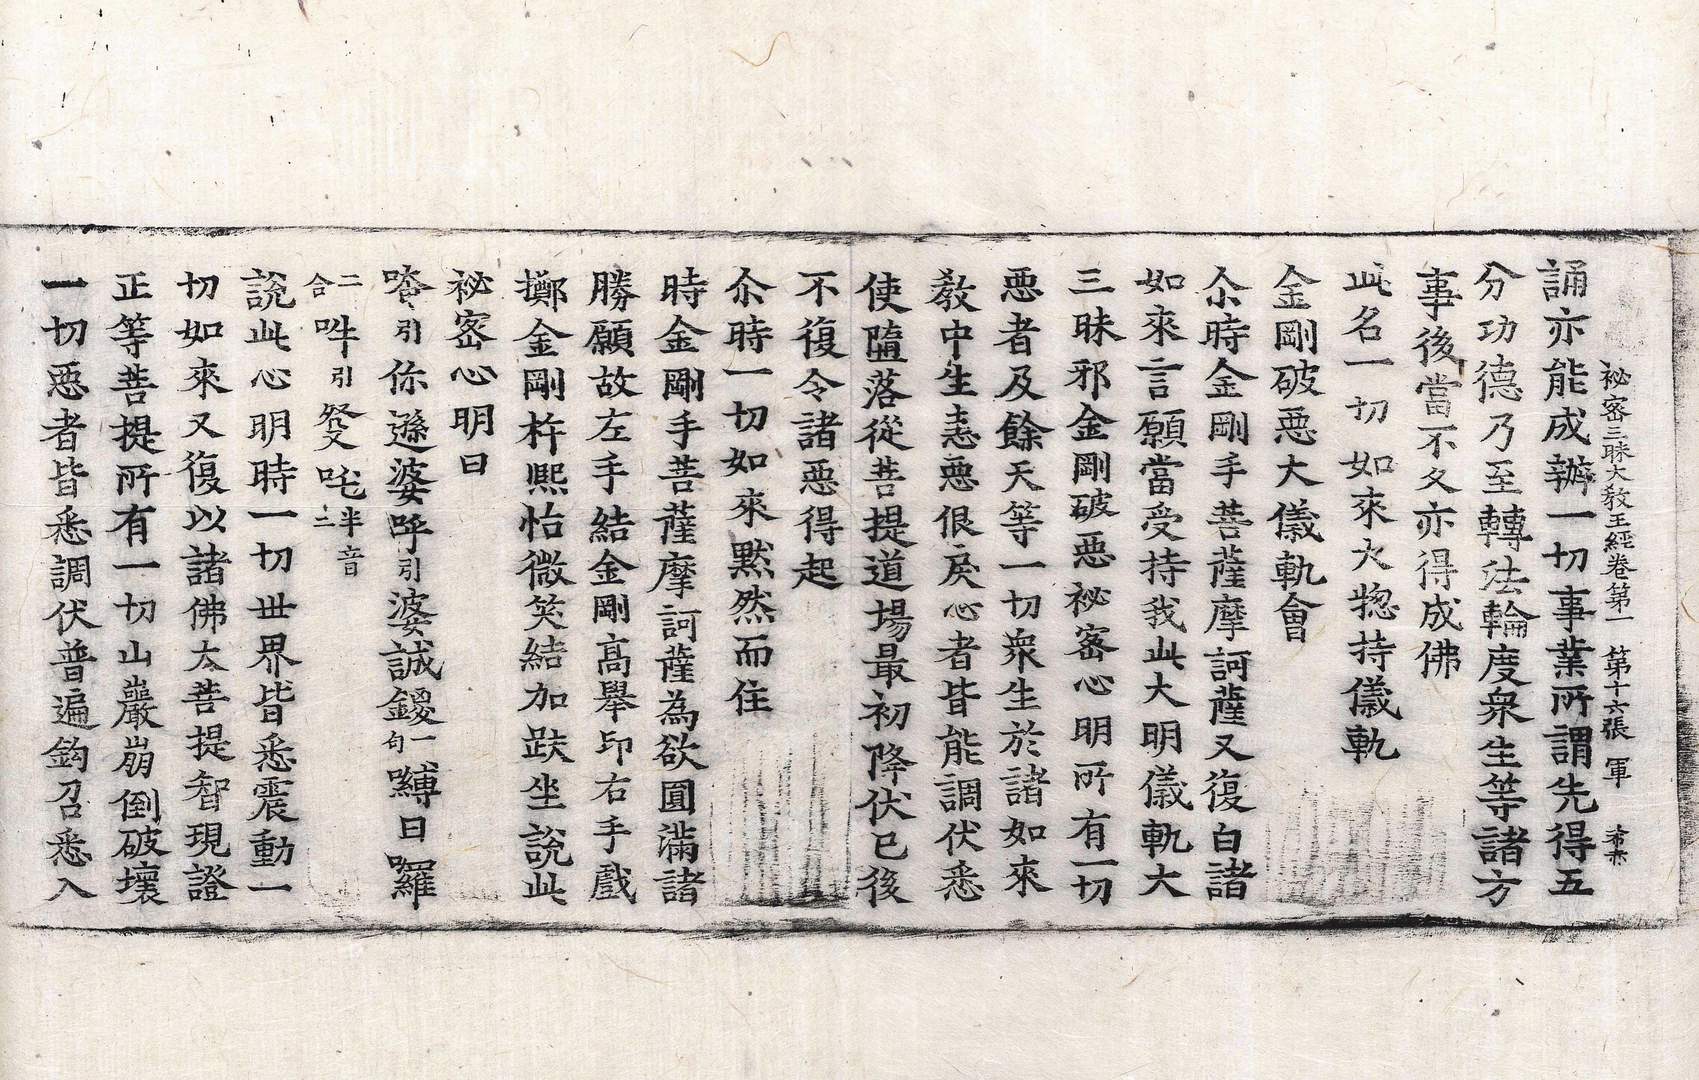 祕密三昧大教王經卷第一　第十六張　軍
誦亦能成辦一切事業所謂先得五
分功德乃至轉法輪度衆生等諸方
事後當不久亦得成佛
此名一切如來大惣持儀軌
金剛破惡大儀軌會
尒時金剛手菩薩摩訶薩又復白諸
如來言願當受持我此大明儀軌大
三昧邪金剛破惡祕密心明所有一切
惡者及餘天等一切衆生於諸如來
教中生恚惡佷戾心者皆能調伏悉
使墮落從菩提道場最初降伏已後
不復令諸惡得起
尒時一切如來默然而住
時金剛手菩薩摩訶薩為欲圓滿諸
勝願故左手結金剛高舉印右手戲
擲金剛杵熙怡微笑結加趺坐說此
祕密心明曰
唵引你遜婆吽引婆誠鑁一句嚩日囉
二合吽引發吒半音二
說此心明時一切世界皆悉震動一
切如來又復以諸佛大菩提智現證
正等菩提所有一切山巖崩倒破壞
一切惡者皆悉調伏普遍鈎召悉入